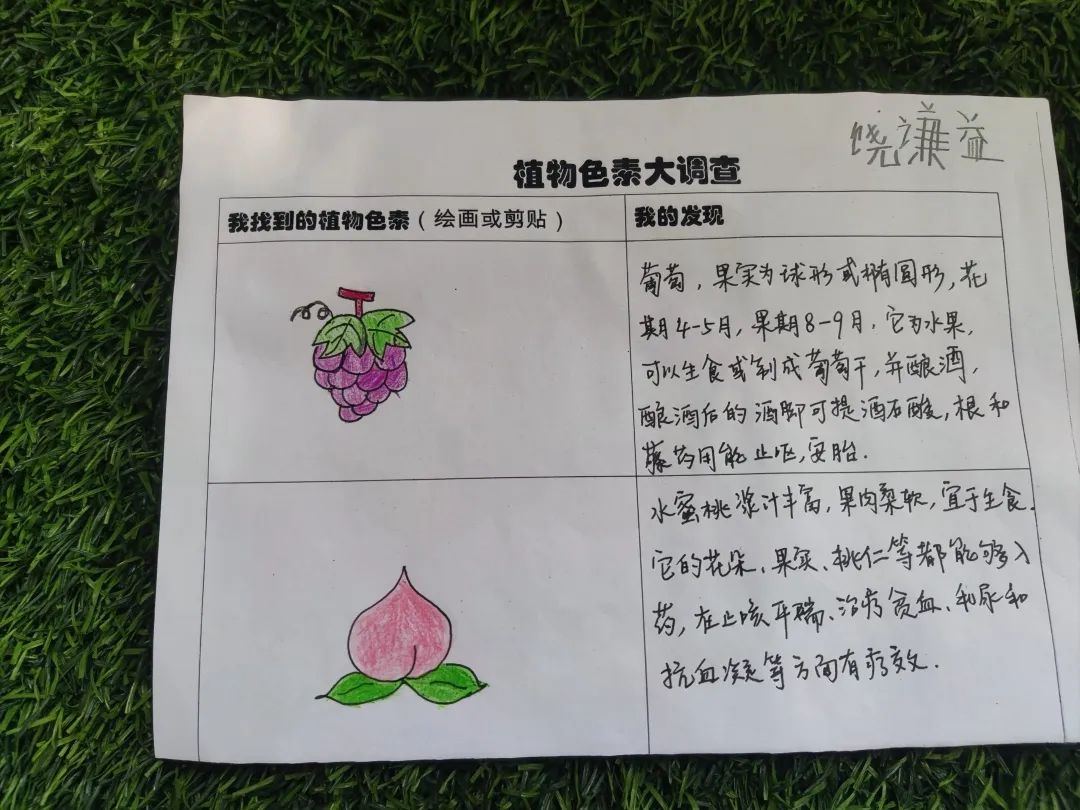 饶谦益
植物色素大调查
我找到的植物色素（绘画或剪贴）
我的发现
葡萄，果实为球形或椭圆形，花
期4-5月，果期8-9月，它为水果，
可以生食或制成葡萄干，并酿酒，
酿酒后的酒脚可提酒石酸，根和
藤药用能止呕，安胎.
水蜜桃浆汁丰富，果肉柔软，宜于生食.
它的花朵、果实、桃仁等都能够入
药，在止咳平喘、治疗贫血、利尿和
抗血凝等方面有疗效.